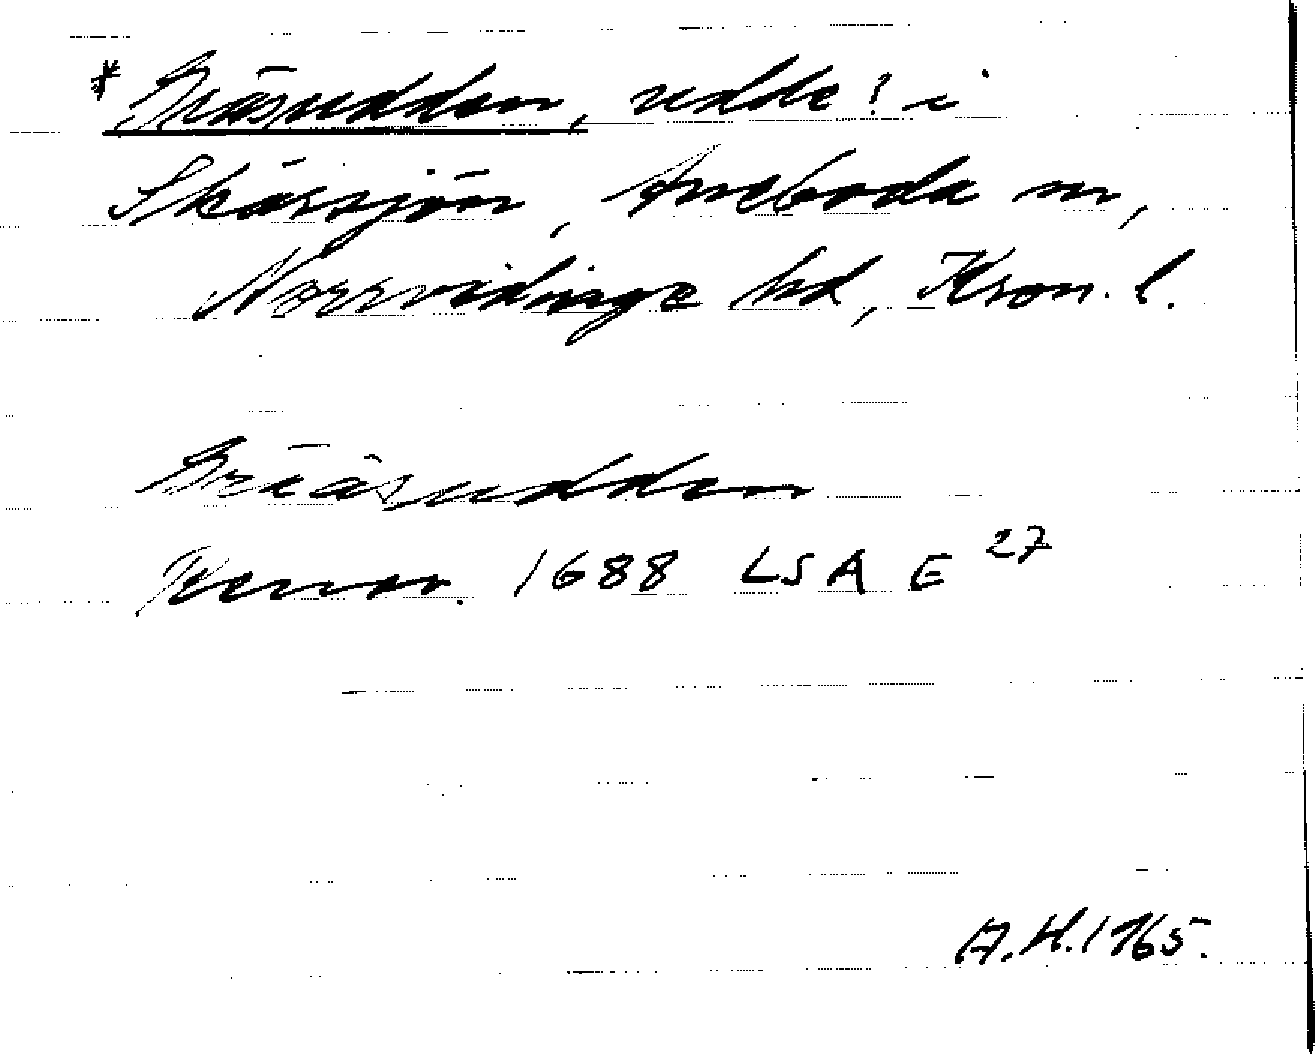 *Gräsudden, udde? i
Skärsjön, Aneboda sn,
Norrvidinge hd, Kron. l.
Gräåsudden
1688 LSA E 27
A.H. 1965.